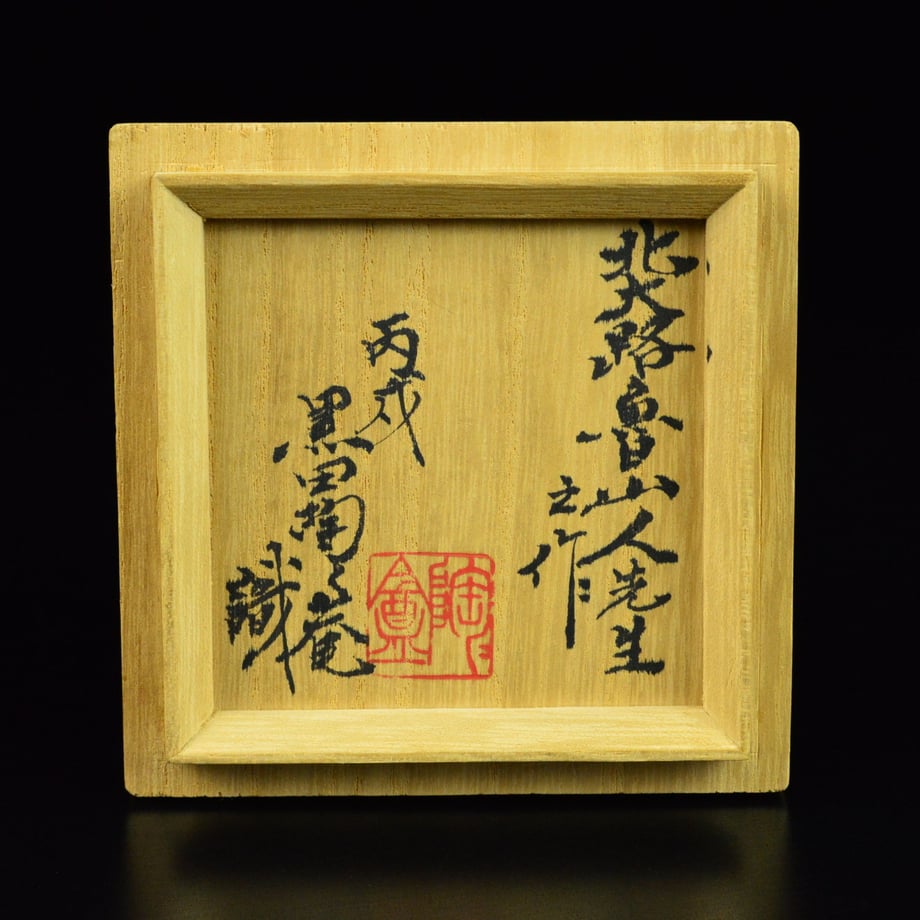 北大路魯山人先生
之作
丙戌
黒田陶々庵
識